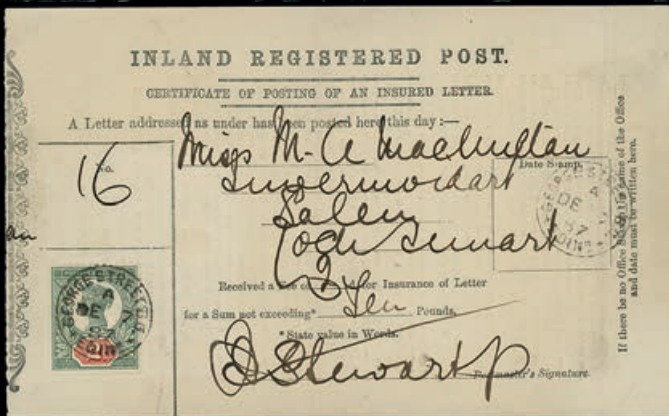 INLAND REGISTERED POST.
CERTIFICATE OF POSTING OF AN INSURED LETTER.
A Letter addressed as under has been posted here this day:—
Miss M. A MacLuftan
Invermoidart
Salem
Loch Sunart
No.
16
Date Stamp.
A
DE 7
87
EDINR
an
GEORGE STREET B.O.
A
DE 7
87
EDINR
Received a Fee of 2 for Insurance of Letter
for a Sum not exceeding* Ten Pounds.
*State value in Words.
Stewart
Postmaster's Signature.
If there be no Office Stamp the name of the Office
and date must be written here.